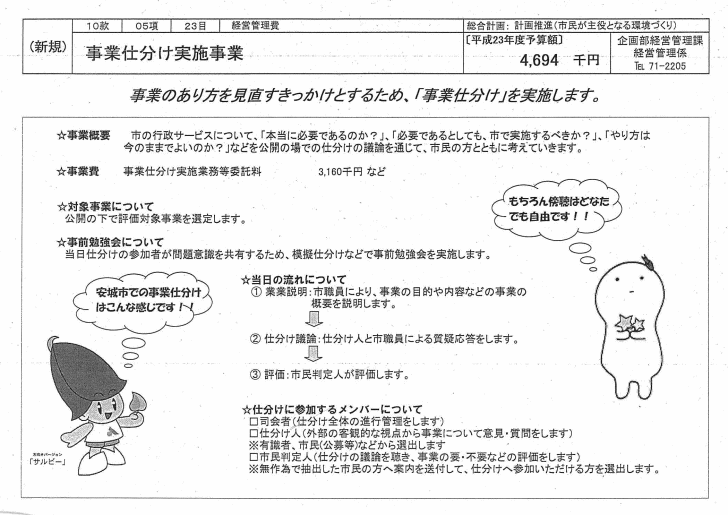 10款 05項 23目 経営管理費 総合計画: 計画推進(市民が主役となる環境づくり)
(新規) 事業仕分け実施事業
〔平成23年度予算額〕
4,694 千円
企画部経営管理課
経営管理係
℡ 71-2205
事業のあり方を見直すきっかけとするため、「事業仕分け」を実施します。
☆事業概要 市の行政サービスについて、「本当に必要であるのか？」、「必要であるとしても、市で実施するべきか？」、「やり方は
今のままでよいのか？」などを公開の場での仕分けの議論を通じて、市民の方とともに考えていきます。
☆事業費 事業仕分け実施業務等委託料 3,160千円 など
☆対象事業について
公開の下で評価対象事業を選定します。
☆事前勉強会について
当日仕分けの参加者が問題意識を共有するため、模擬仕分などで事前勉強会を実施します。
もちろん傍聴はどなた
でも自由です！！
安城市での事業仕分け
はこんな感じです！！
☆当日の流れについて
① 業業説明:市職員により、事業の目的や内容などの事業の
概要を説明します。
② 仕分け議論:仕分け人と市職員による質疑応答をします。
③ 評価:市民判定人が評価します。
☆仕分けに参加するメンバーについて
□司会者(仕分け全体の進行管理をします)
□仕分け人(外部の客観的な視点から事業について意見・質問をします)
※有識者、市民(公募等)などから選出します
□市民判定人(仕分けの議論を聴き、事業の要・不要などの評価をします)
※無作為で抽出した市民の方へ案内を送付して、仕分けへ参加いただける方を選出します。
「サルビー」